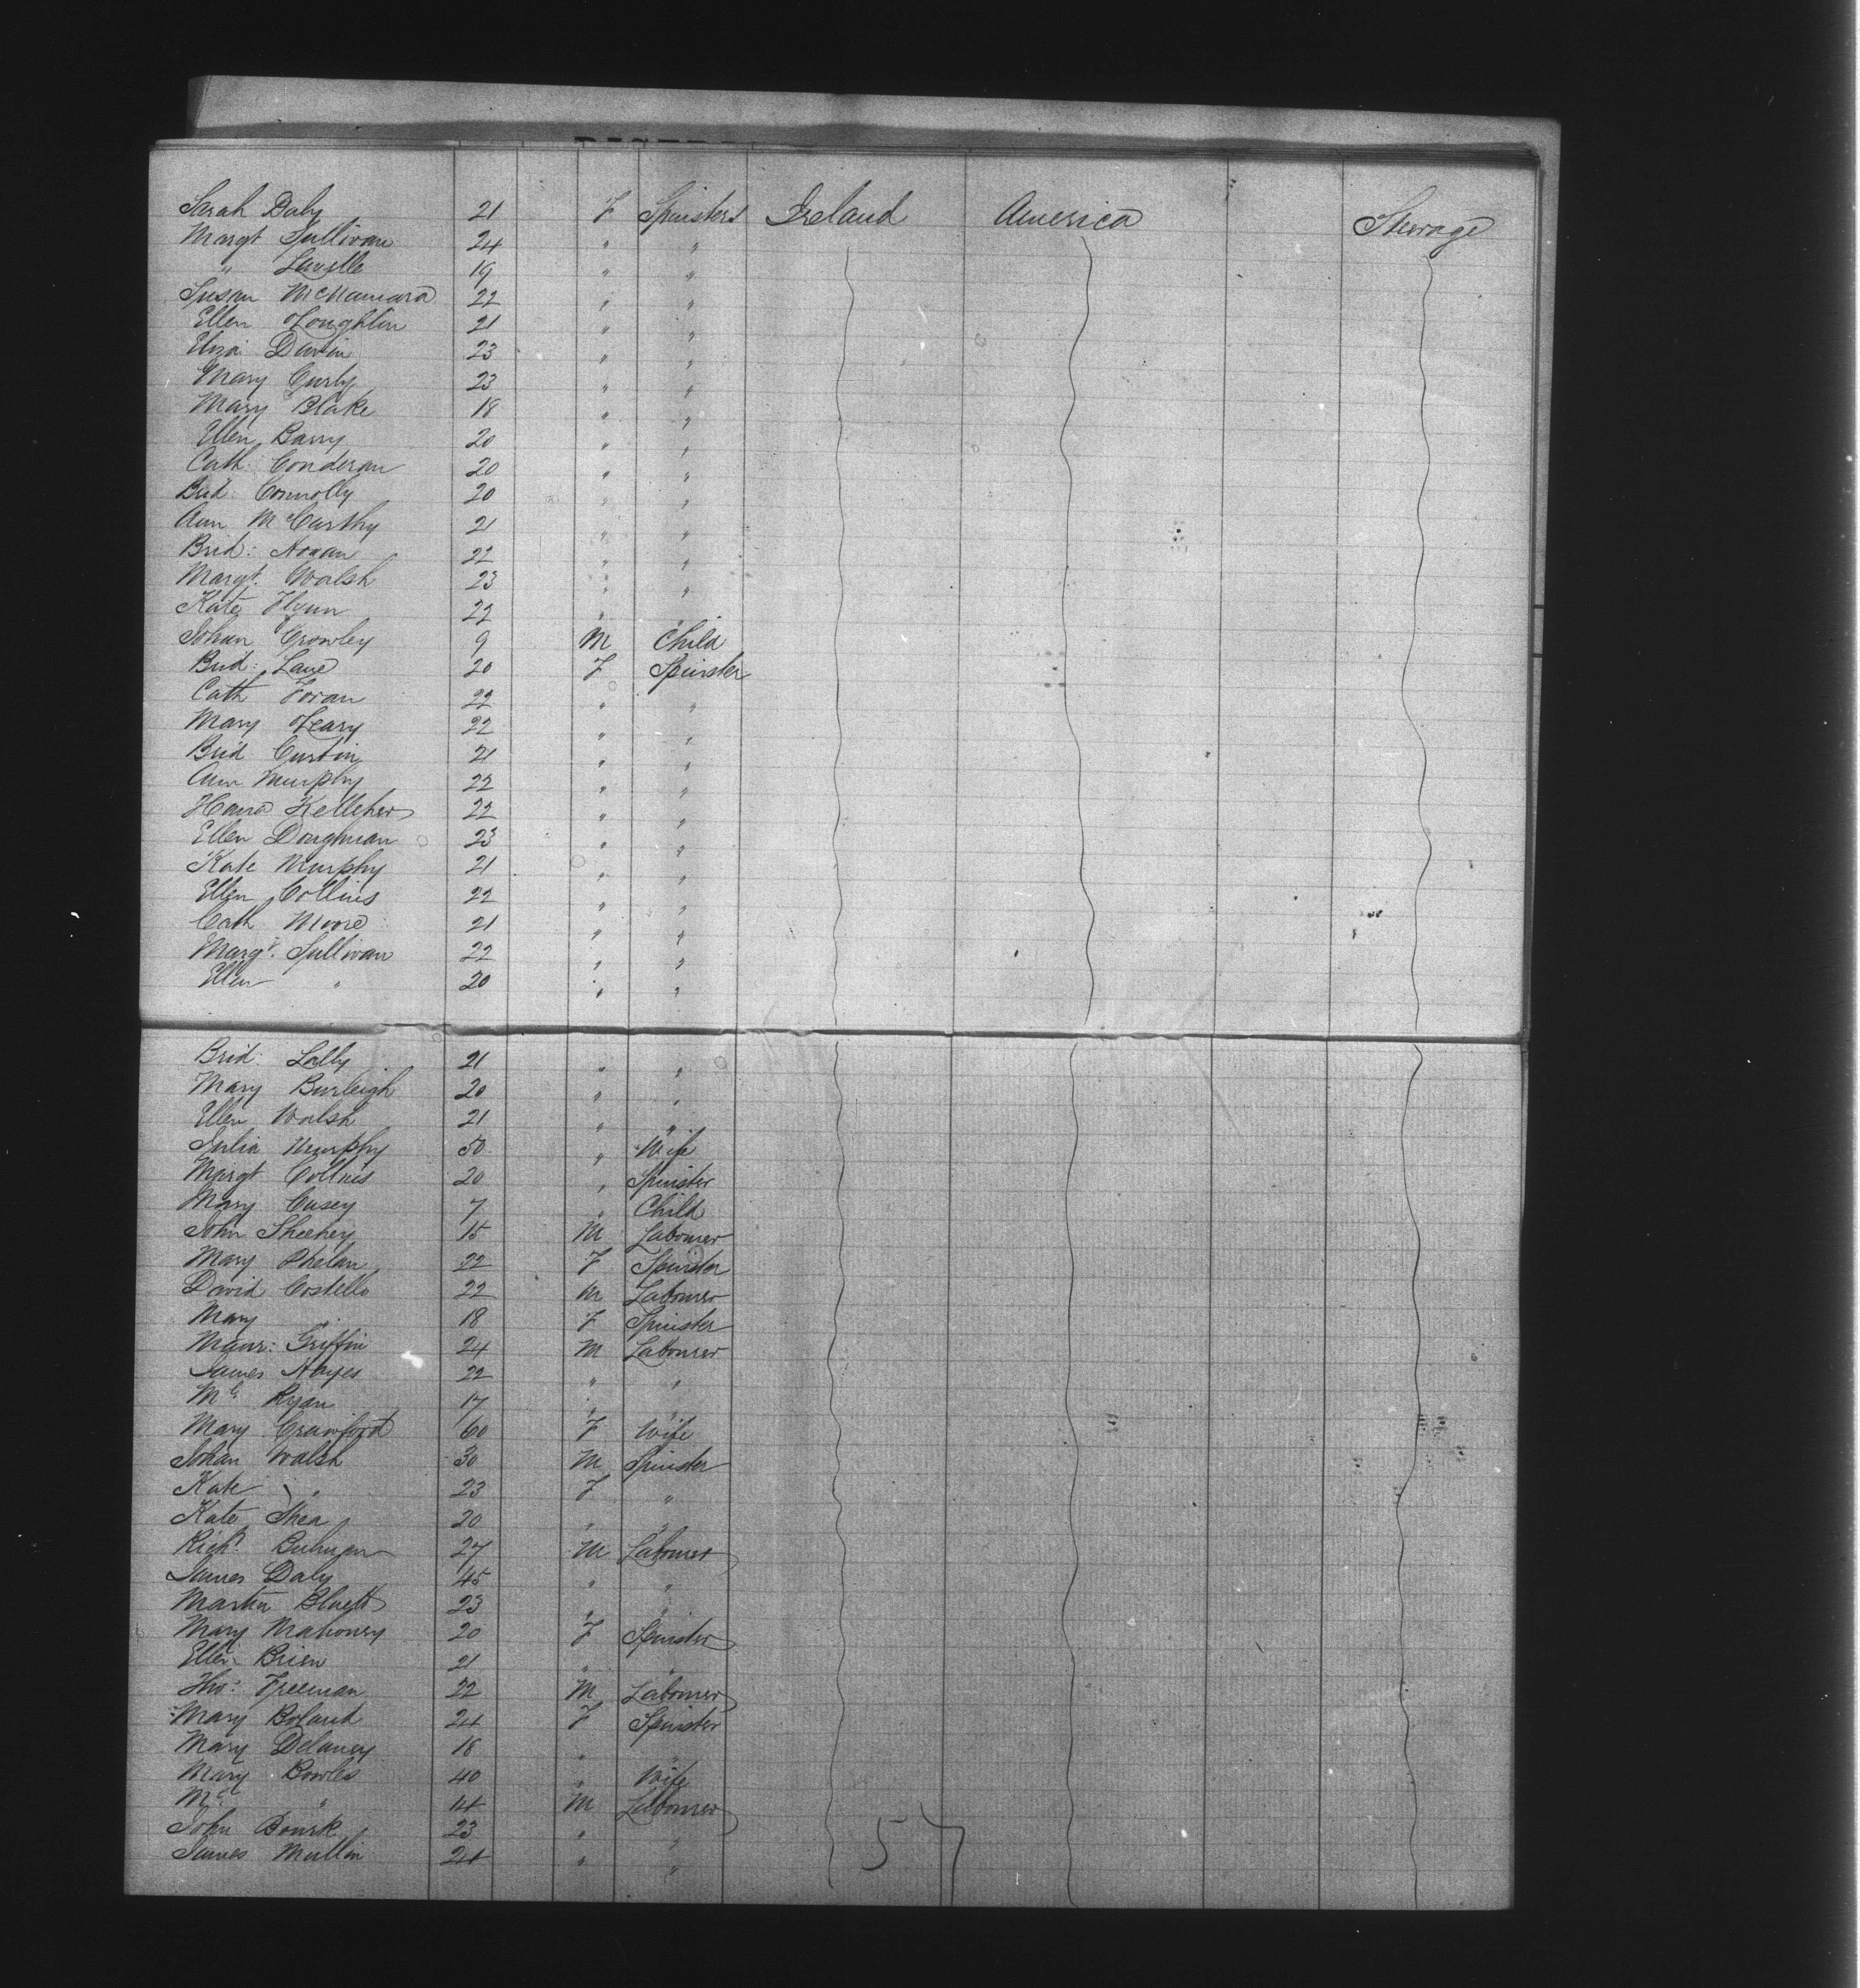 Sarah Daly 21 F Spinsters Ireland America Steerage
Margt Sullivan 24 " "
" Lavelle 19 " "
Susan McNamara 22 " "
Ellen O'Loughlin 21 " "
Eliza Davin 23 " "
Mary Curly 23 " "
Mary Blake 18 " "
Ellen Barry 20 " "
Cath: Conderan 20 " "
Brid: Connolly 20 " "
Ann McCarthy 21 " "
Brid: Noxan 22 " "
Margt. Walsh 23 " "
Kate Flynn 22 " "
Johan Crowley 9 M Child
Brid: Lane 20 F Spinster
Cath Foran 22 " "
Mary O'Leary 22 " "
Brid Curtin 21 " "
Ann Murphy 22 " "
Hana Kelleher 22 " "
Ellen Doughnan 23 " "
Kate Murphy 21 " "
Ellen Collins 22 " "
Cath Moore 21 " "
Margt. Sullivan 22 " "
Ellen " 20 " "
Brid: Lally 21 " "
Mary Burleigh 20 " "
Ellen Walsh 21 " "
Julia Murphy 50 " Wife
Margt Collins 20 " Spinster
Mary Casey 7 " Child
John Sheehey 15 M Labourer
Mary Phelan 22 F Spinster
David Costello 22 M Labourer
Mary " 18 F Spinster
Maur: Griffin 24 M Labourer
James Hayes 22 " "
Ml Ryan 17 " "
Mary Crawford 60 F Wife
Johan Walsh 30 M Spinster
Kate " 23 F "
Kate Shea 20 " "
Richd. 27 M Labourer
James Daly 45 " "
Martin Bluett 23 " "
Mary Mahoney 20 F Spinster
Ellen Brien 21 " "
Thos: Freeman 22 M Labourer
Mary Boland 24 F Spinster
Mary Delaney 18 " "
Mary Bowles 40 " Wife
Ml " 14 M Labourer
John Bourk 23 " "
James Mullin 24 " "
57